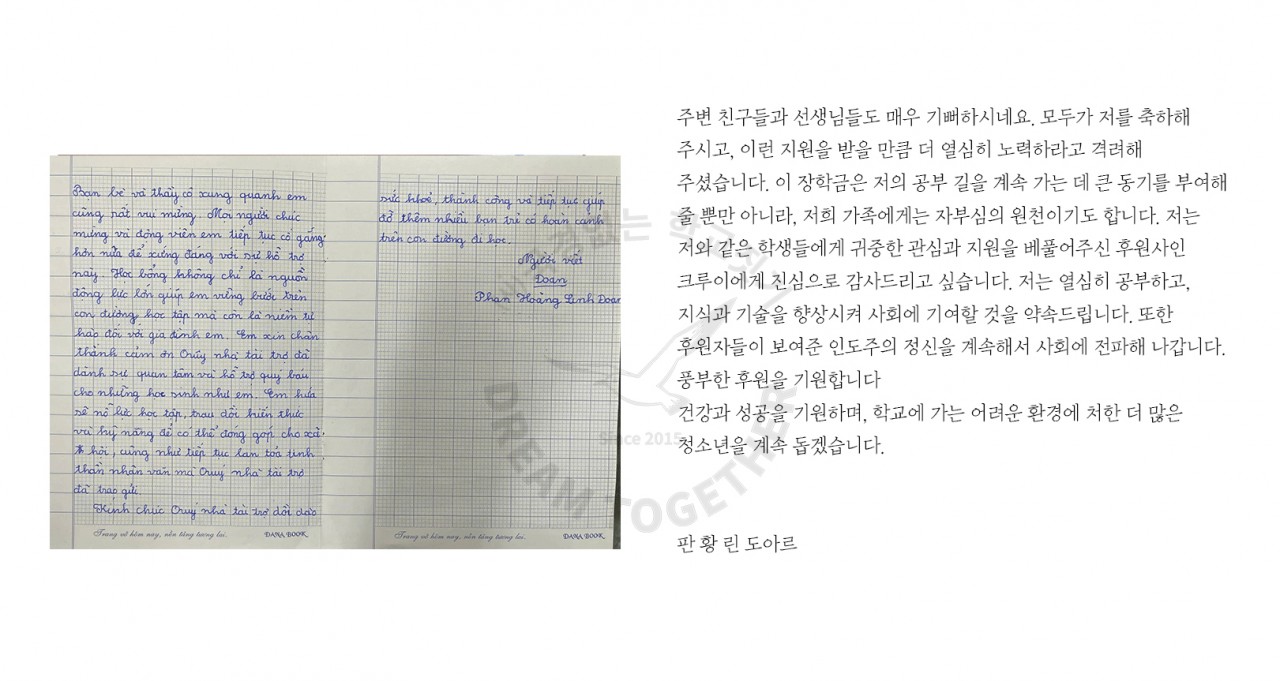 Bạn bè và thầy cô xung quanh em
cũng rất vui mừng. Mọi người chúc
mừng và động viên em tiếp tục cố gắng
hơn nữa để xứng đáng với sự hỗ trợ
này. Học bổng không chỉ là nguồn
động lực lớn giúp em vững bước trên
con đường học tập mà còn là niềm tự
hào đối với gia đình em. Em xin chân
thành cảm ơn Qúy nhà tài trợ đã
dành sự quan tâm và hỗ trợ quý báu
cho những học sinh như em. Em hứa
sẽ nỗ lực học tập, trau dồi kiến thức
và kỹ năng để có thể đóng góp cho xã
hội, cũng như tiếp tục lan toả tinh
thần nhân văn mà Qúy nhà tài trợ
đã trao gửi.
Kính chúc Qúy nhà tài trợ dồi dào
Trang vở hôm nay, nền tảng tương lai.
DANA BOOK
sức khoẻ, thành công và tiếp tục giúp
đỡ thêm nhiều bạn trẻ có hoàn cảnh
trên con đường đi học.
Người viết
Doan
Phan Hoàng Linh Doan
Trang vở hôm nay, nền tảng tương lai.
DANA BOOK
주변 친구들과 선생님들도 매우 기뻐하시네요. 모두가 저를 축하해
주시고, 이런 지원을 받을 만큼 더 열심히 노력하라고 격려해
주셨습니다. 이 장학금은 저의 공부 길을 계속 가는 데 큰 동기를 부여해
줄 뿐만 아니라, 저희 가족에게는 자부심의 원천이기도 합니다. 저는
저와 같은 학생들에게 귀중한 관심과 지원을 베풀어주신 후원사인
크루이에게 진심으로 감사드리고 싶습니다. 저는 열심히 공부하고,
지식과 기술을 향상시켜 사회에 기여할 것을 약속드립니다. 또한
후원자들이 보여준 인도주의 정신을 계속해서 사회에 전파해 나갑니다.
풍부한 후원을 기원합니다
건강과 성공을 기원하며, 학교에 가는 어려운 환경에 처한 더 많은
청소년을 계속 돕겠습니다.
판 황 린 도아르
Since 2015
DREAM TOGETHER